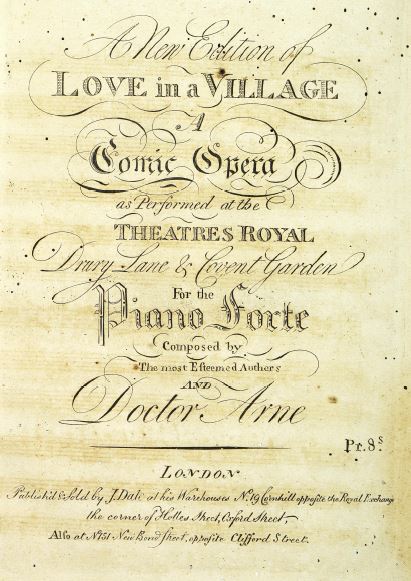 A New Edition of
LOVE in a VILLAGE
A
Comic Opera
as Performed at the
THEATRES ROYAL
Drury Lane & Covent Garden
For the
Piano Forte
Composed by
The most Esteemed Authors
AND
Doctor Arne
Pr. 8s.
LONDON
Publish'd & Sold by J. Dale at his Warehouses No. 19 Cornhill opposite the Royal Exchange
the corner of Holles Street, Oxford Street,
Also at No. 151 New Bond Street, opposite Clifford Street.